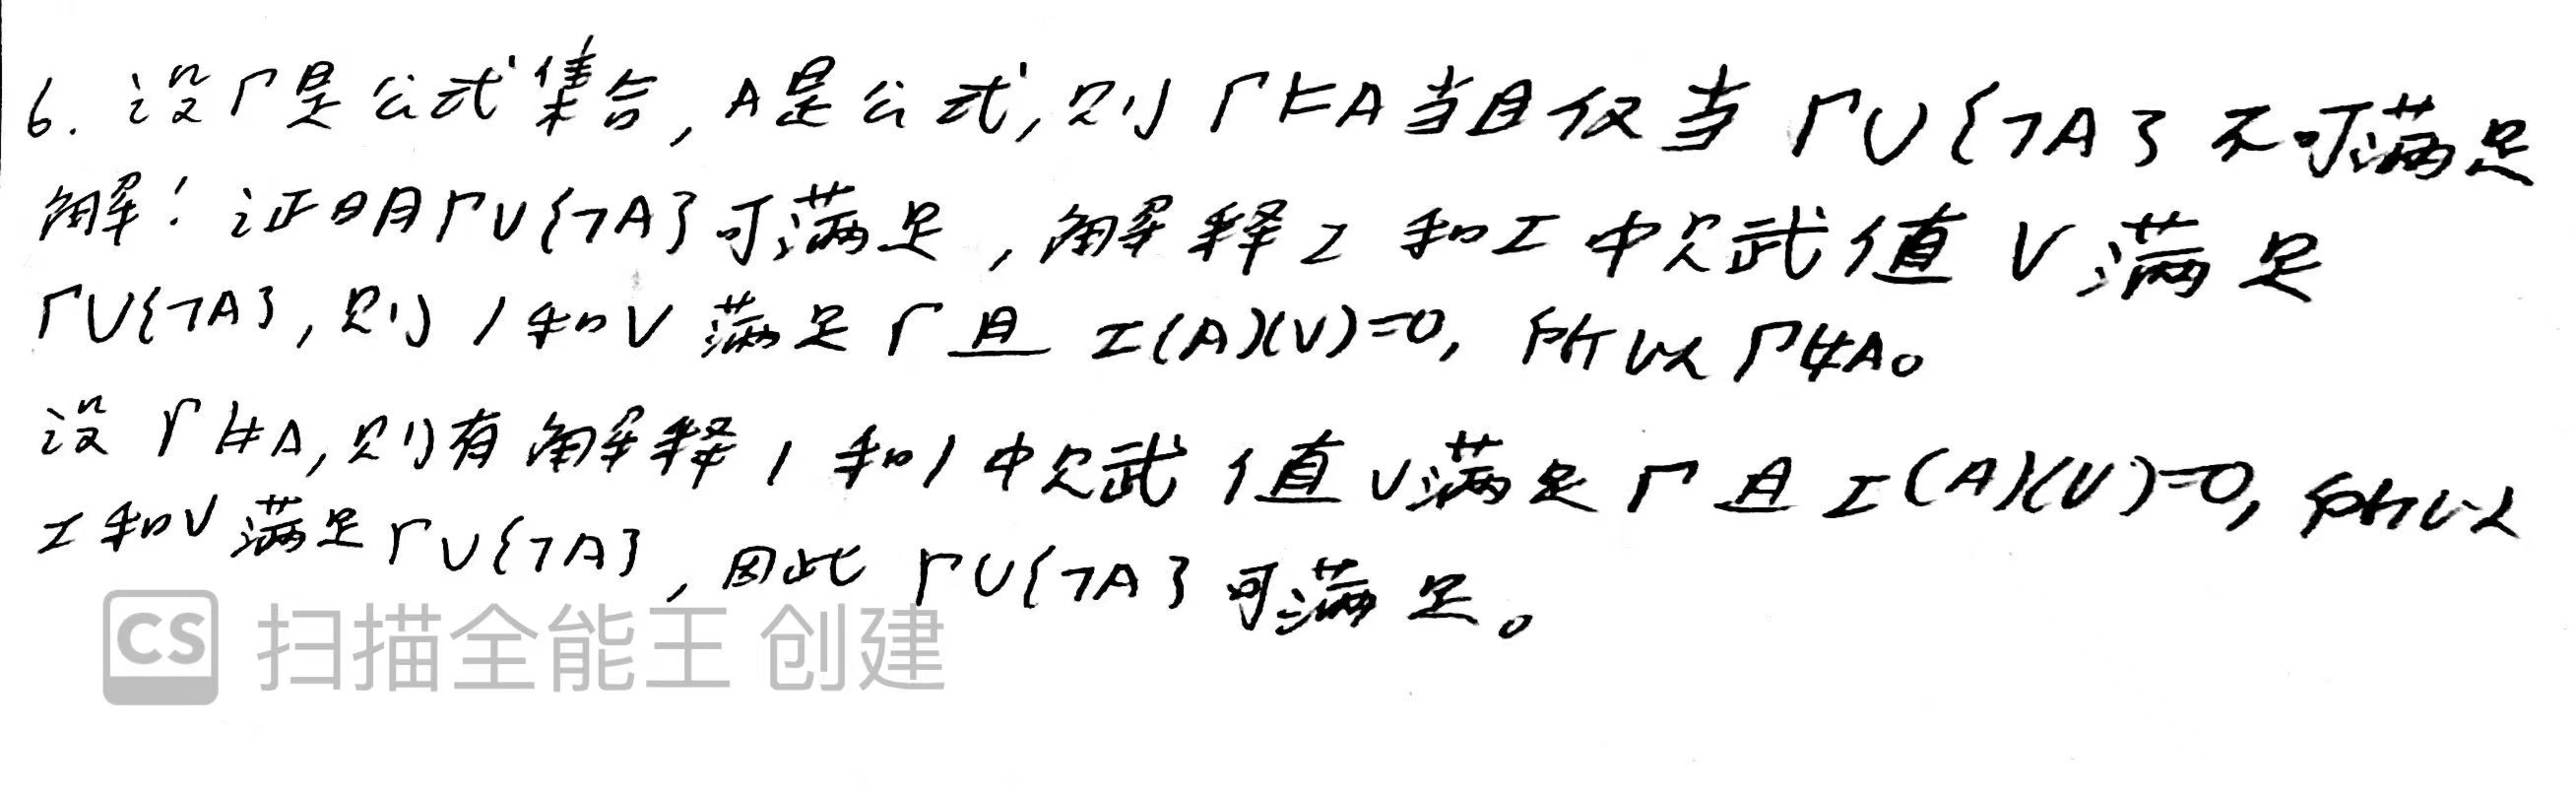 6. 设Γ是公式集合, A是公式, 则Γ⊨A当且仅当Γ∪{¬A}不可满足
解: 证明Γ∪{¬A}可满足, 解释I和I中赋值V满足
Γ∪{¬A}, 则I和V满足Γ且I(A)(V)=0, 所以Γ⊭A。
设Γ⊭A, 则有解释I和I中赋值V满足Γ且I(A)(V)=0, 所以
I和V满足Γ∪{¬A}, 因此Γ∪{¬A}可满足。
CS 扫描全能王 创建